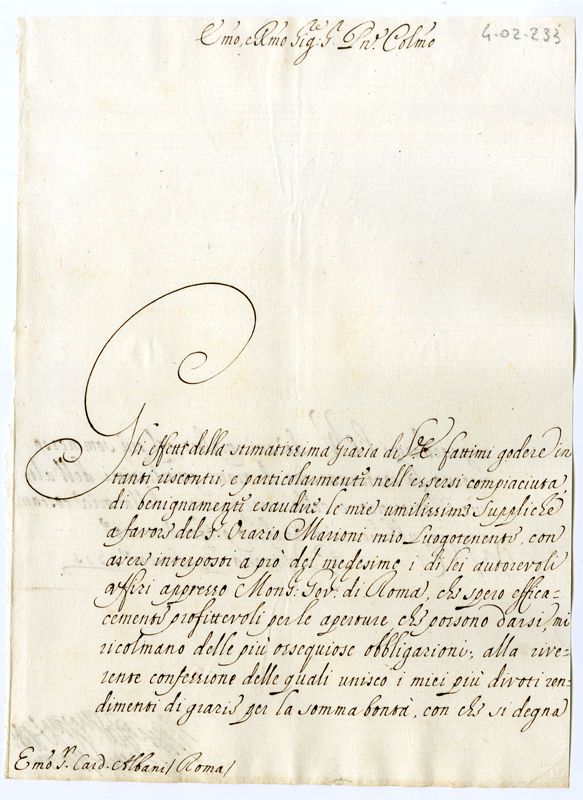 Emo, e Rmo Sig.re Sr. Pne. Colmo
4-02-233
Gli effetti della stimatissima Grazia di V.E. fattimi godere in
tanti riscontri, e particolarmente nell'essersi compiaciuta
di benignamente esaudire le mie umilissime Suppliche
a favore del Sr. Orazio Marioni mio Luogotenente, con
avere interposti a prò del medesimo i di lei autorevoli
uffizi appresso Mons: Gov.re di Roma, che spero effica=
cemente profittevoli per le aperture, che possono darsi, mi
ricolmano delle più ossequiose obbligazioni; alla rive=
rente confessione delle quali unisco i miei più divoti ren=
dimenti di grazie per la somma bontà, con che si degna
Emo Sr. Card. Albani / Roma /